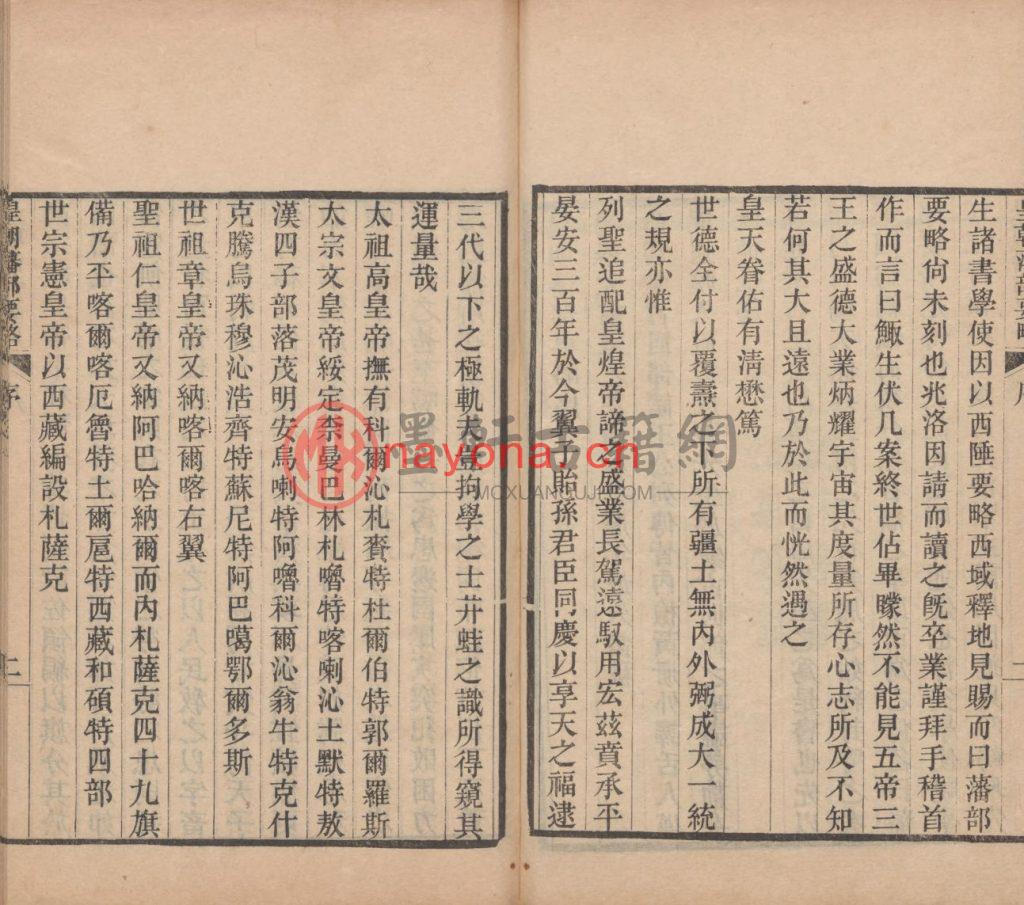 生諸書學使因以西陲要略西域釋地見賜而曰藩部
要略尙未刻也兆洛因請而讀之旣卒業謹拜手稽首
作而言曰鯫生伏几案終世佔畢矇然不能見五帝三
王之盛德大業炳耀宇宙其度量所存心志所及不知
若何其大且遠也乃於此而恍然遇之
皇天眷佑有淸懋篤
世德全付以覆燾之下所有疆土無內外弼成大一統
之規亦惟
列聖追配皇煌帝諦之盛業長駕遠馭用宏茲賁承平
晏安三百年於今翼子貽孫君臣同慶以享天之福逮
三代以下之極軌夫豈拘學之士井蛙之識所得窺其
運量哉
太祖高皇帝撫有科爾沁札賚特杜爾伯特郭爾羅斯
太宗文皇帝綏定柰曼巴林札嚕特喀喇沁土默特敖
漢四子部落茂明安烏喇特阿嚕科爾沁翁牛特克什
克騰烏珠穆沁浩齊特蘇尼特阿巴噶鄂爾多斯
世祖章皇帝又納喀爾喀右翼
聖祖仁皇帝又納阿巴哈納爾而內札薩克四十九旗
備乃平喀爾喀厄魯特土爾扈特西藏和碩特四部
世宗憲皇帝以西藏編設札薩克
皇朝藩部要略 序 二
墨軒古籍網
nayona.cn
MOXUANGUJI.COM